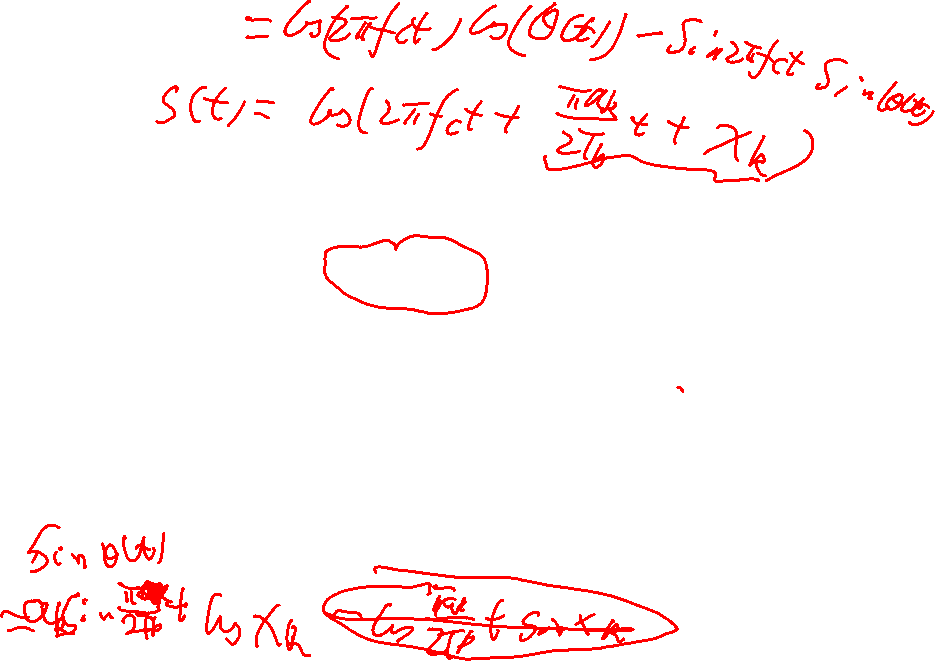 = cos(2πfct) cos(θ(t)) - sin2πfct sin(θ(t))
S(t) = cos(2πfct + πak/2Tb t + xk)
sin θ(t)
= ak sin π/2Tb t cos xk